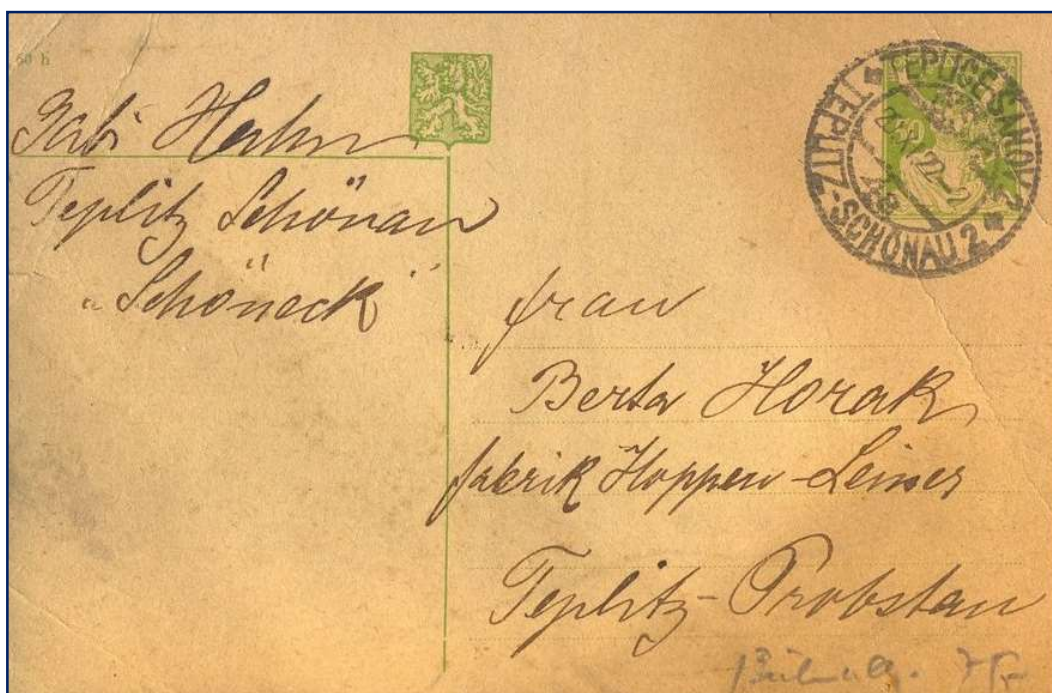 60 h
Gabi Hahn
Teplitz Schönau
"Schöneck"
TEPLICE-ŠANOV 2
TEPLITZ-SCHÖNAU 2
Frau
Berta Horak
Fabrik Hoppen-Leiner
Teplitz-Probstau